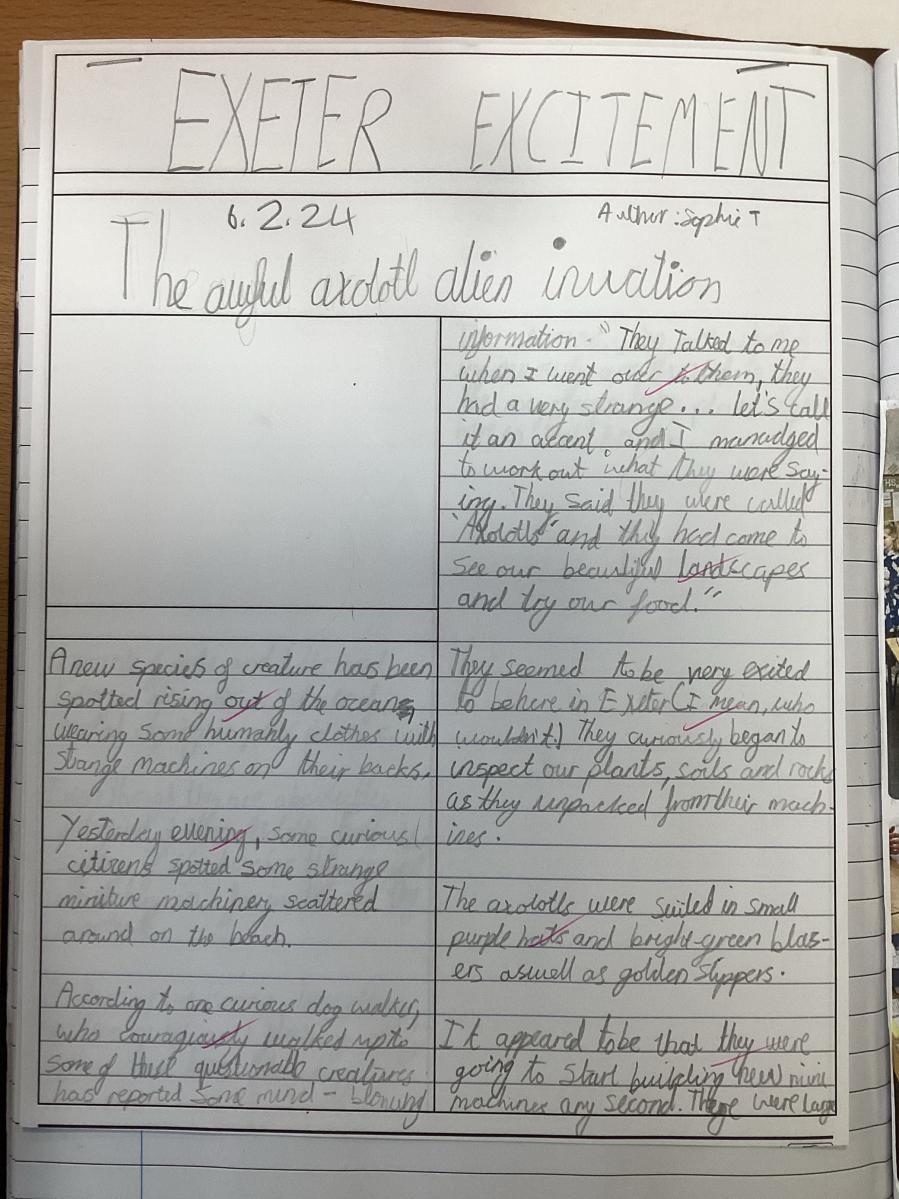 EXETER EXCITEMENT
6.2.24
Author: Sophie T
The awful axolotl alien invation
A new species of creature has been
spotted rising out of the oceans
wearing some humanly clothes with
strange machines on their backs.
Yesterday evening, some curious
citizens spotted some strange
miniture machinery scattered
around on the beach.
According to one curious dog walker,
who couragiously walked upto
some of these questionable creatures
has reported some mind-blowing
information. "They Talked to me
when I went over to them, they
had a very strange... let's call
it an accent, and I managed
to work out what they were say-
ing. They said they were called
'Axolotls' and they had come to
see our beautiful landscapes
and try our food."
They seemed to be very exited
to be here in Exeter (I mean, who
wouldn't.) They curiously began to
inspect our plants, soils and rocks
as they unpacked from their mach-
ines.
The axolotls were suited in small
purple hats and bright-green blas-
ers aswell as golden slippers.
It appeared to be that they were
going to start building new mini
machines any second. There were large